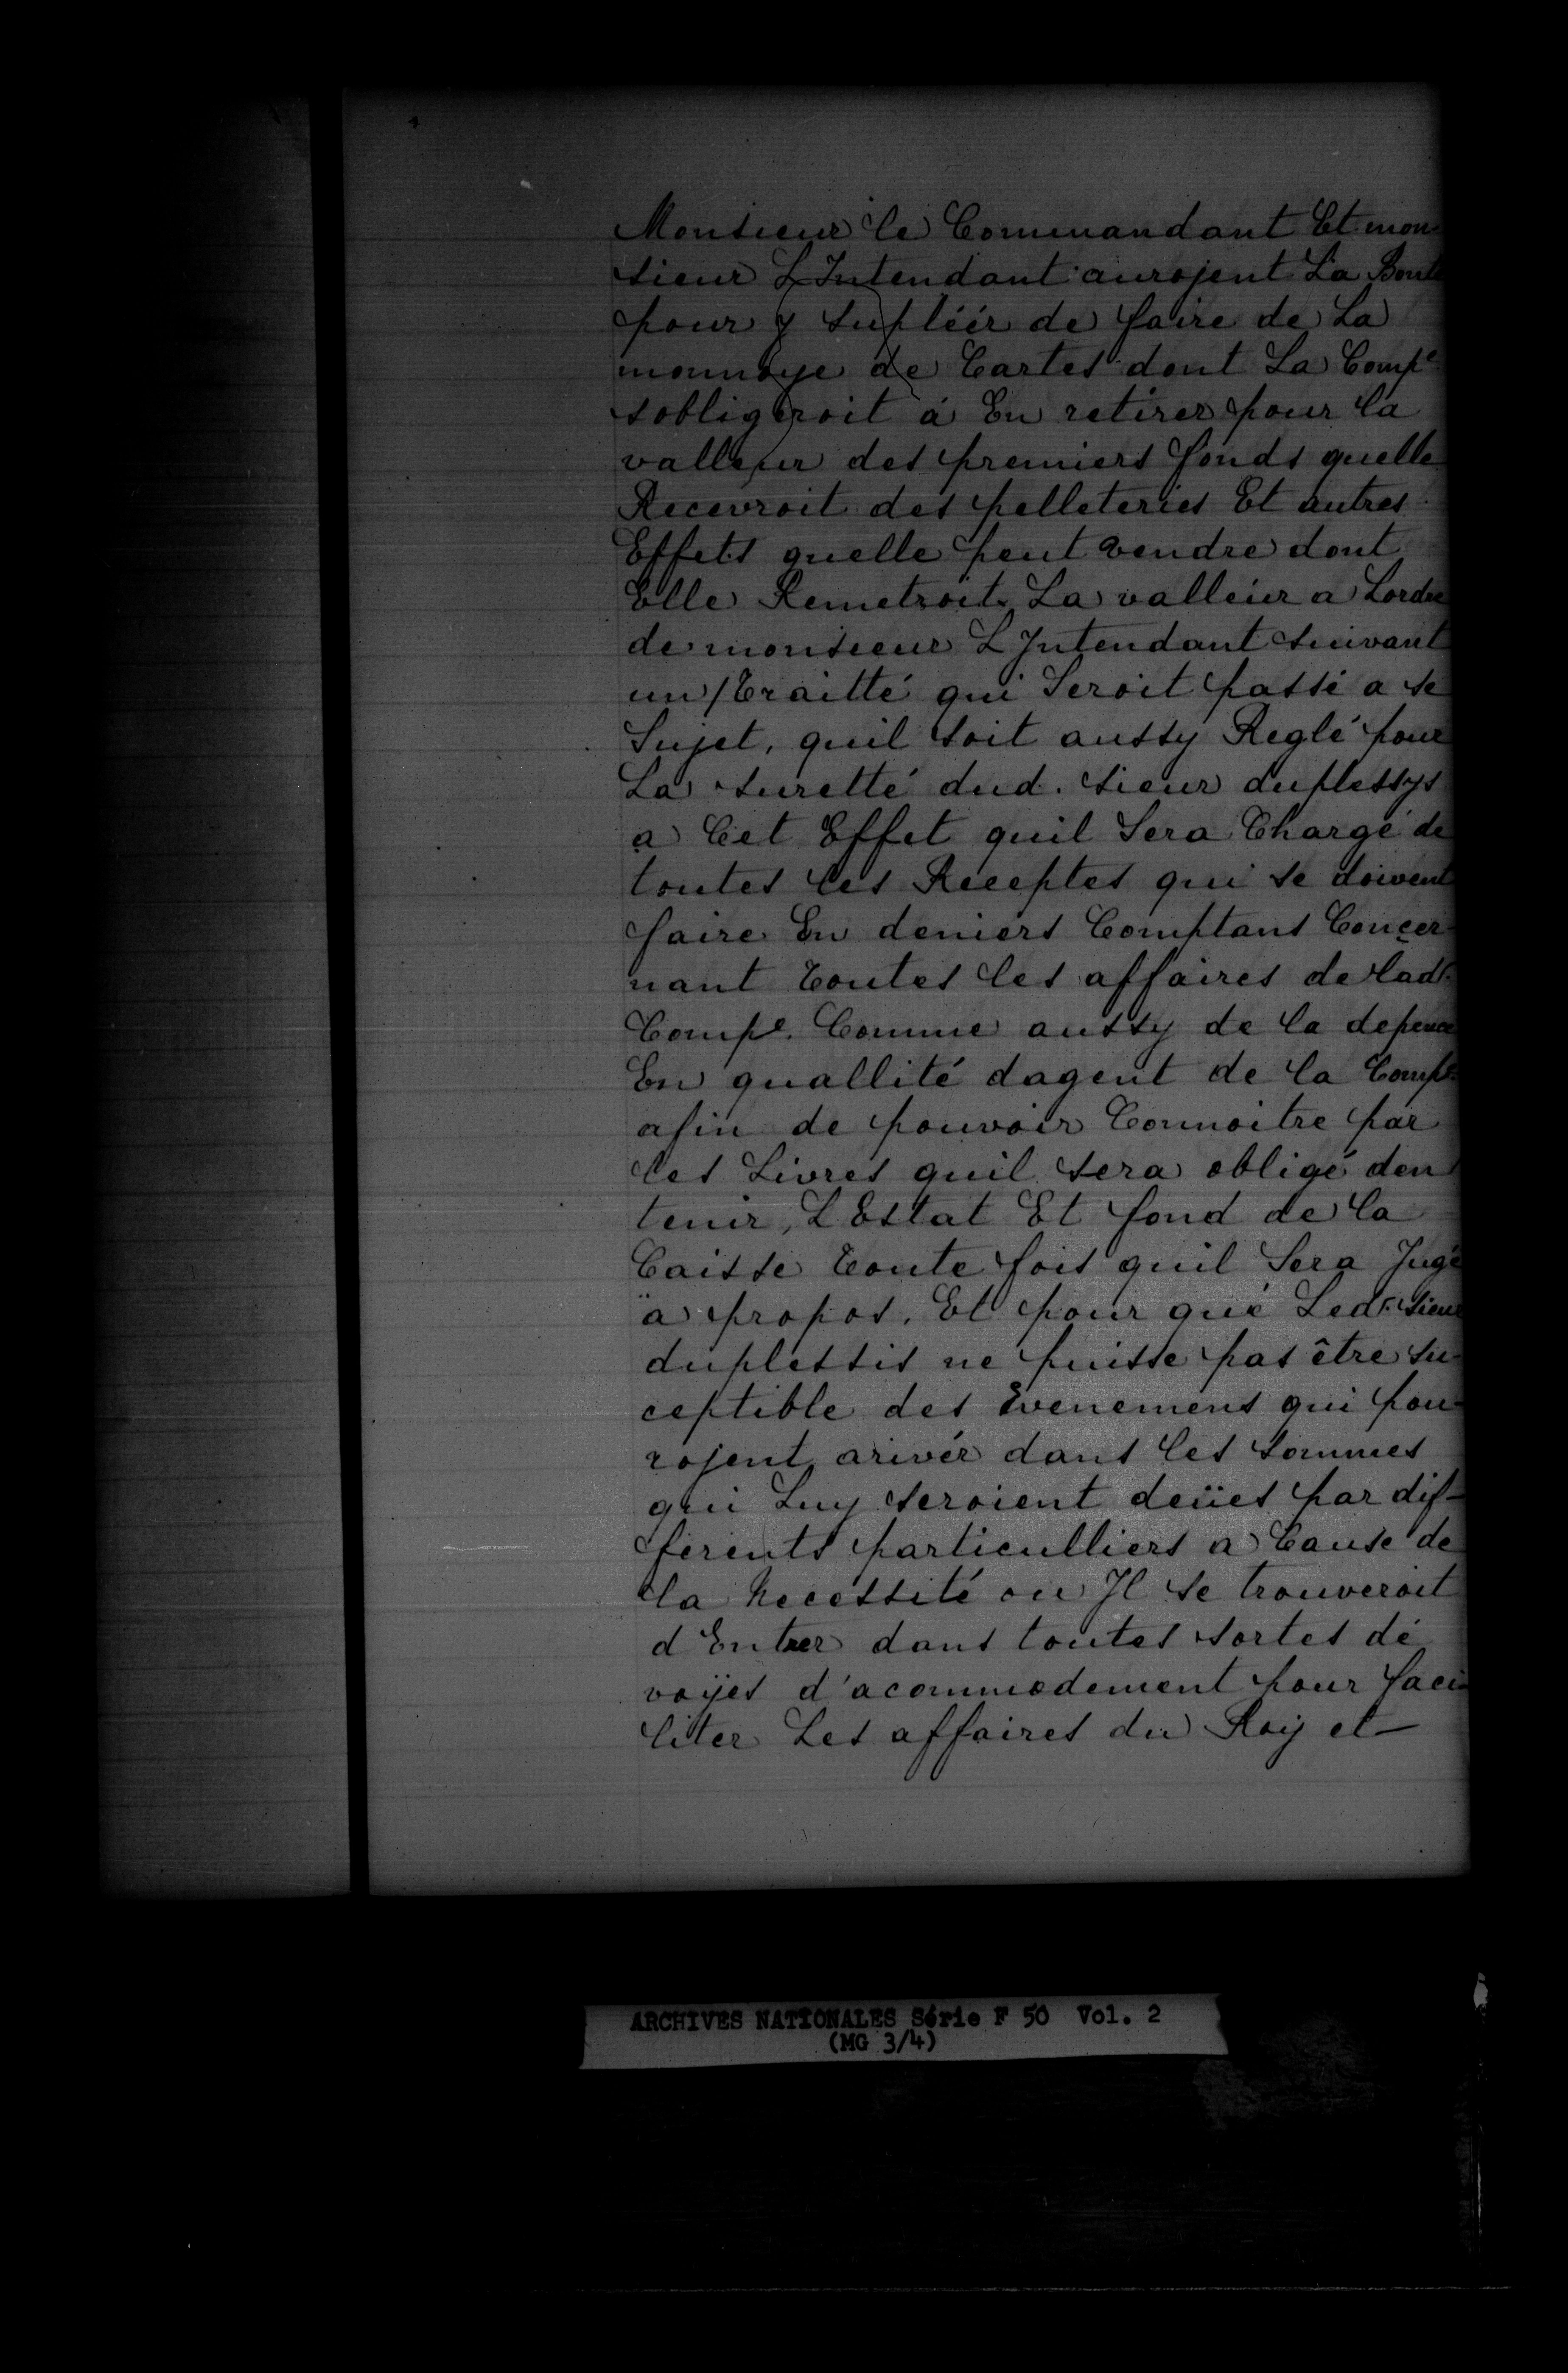 Monsieur le Commandant Et mon-
sieur L Intendant aurojent La Bonté
pour y supléér de faire de La
monnoye de Cartes dont La Compe.
sobligeroit á En retirer pour la
valleur des premiers fonds quelle
Recevroit des pelleteries Et autres
Effets quelle peut vendre dont
Elle Remetroit La valléur a Lordre
de monsieur L Jntendant suivant
un Traitté qui Seroit passé a se
Sujet, quil soit aussy Reglé pour
La suretté dud. sieur duplessys
a Cet Effet quil Sera Chargé de
toutes les Receptes qui se doivent
faire En deniers Comptans Concer-
nant toutes les affaires de lad.
Compe. Comme aussy de la depence
En quallité dagent de la Compe.
afin de pouvoir Connoitre par
les Livres quil sera obligé den
tenir, L Estat Et fond de la
Caisse toute fois quil Sera Jugé
a propos, Et pour que Led. sieur
duplessis ne puisse pas être su-
ceptible des Evenemens qui pou-
rojent arivér dans les sommes
qui Luy seroient deües par dif-
ferents particulliers a Cause de
la Necessité ou Jl se trouveroit
d Entrer dans toutes sortes dé
voÿes d'acommodement pour faci-
liter Les affaires du Roy et—
ARCHIVES NATIONALES Série F 50 Vol. 2
(MG 3/4)